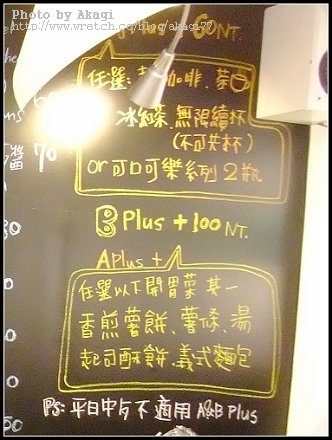 Photo by Akagi
http://www.wretch.cc/blog/akagi77
A Plus + 80 NT.
任選: 咖啡、茶
冰紅茶、無限續杯
(不可共杯)
or 可口可樂系列 2 瓶
B Plus + 100 NT.
A Plus +
任選以下開胃菜 其一
香煎薯餅、薯條、湯
起司酥餅、義式麵包
PS: 平日中午不適用 A&B Plus
醬 70